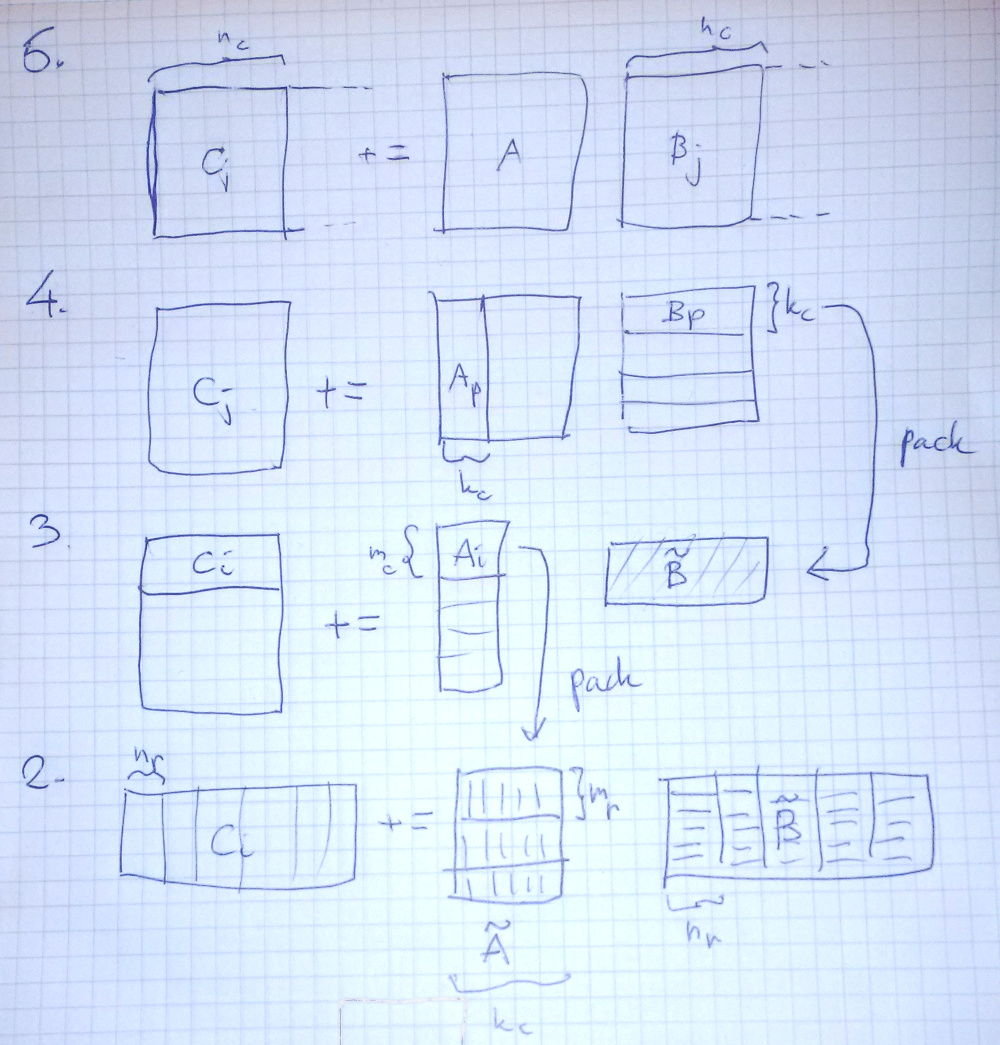 5.
n_c
n_c
C_j += A B_j
4.
C_j += A_p B_p k_c
k_c
pack
3.
C_i += m_c A_i B̃
pack
2.
n_r
C_i += m_r B̃
Ã
n_r
k_c